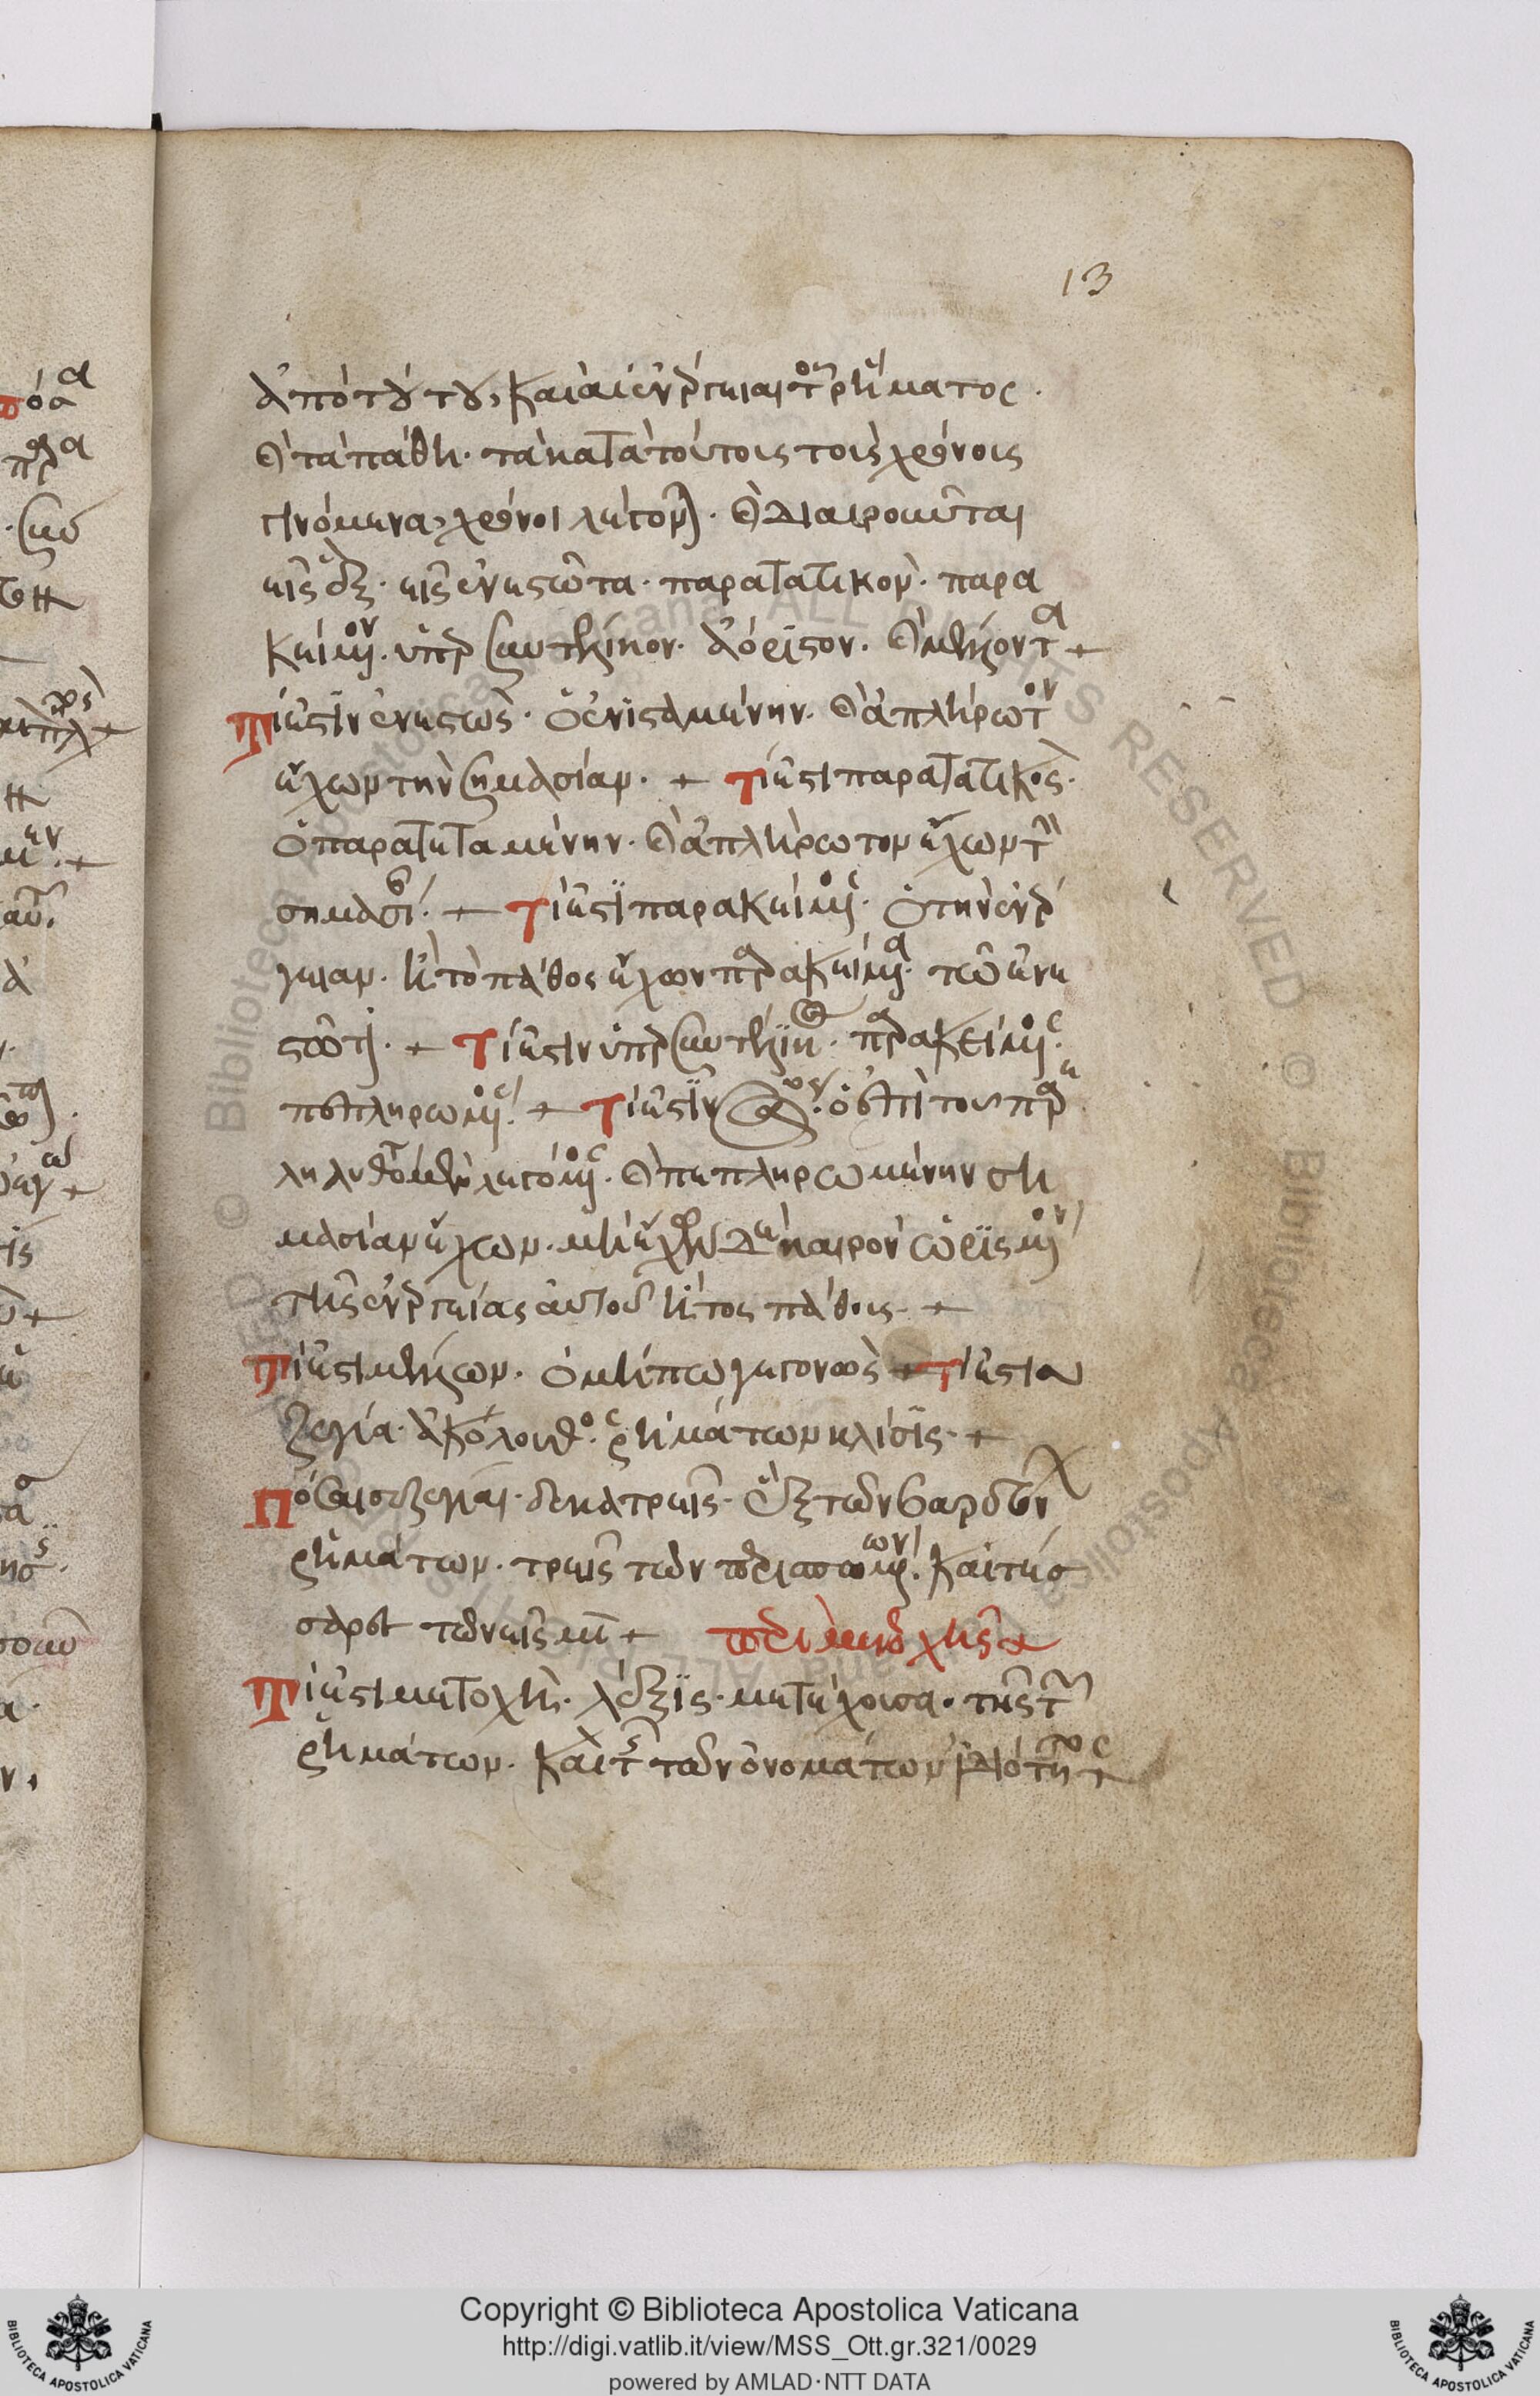 13
ἀπὸ τούτου, καὶ αἱ ἐνέργειαι τοῦ ῥήματος.
καὶ τὰ πάθη. τὰ κατὰ τούτοις τοῖς χρόνοις
γινόμενα, χρόνοι λέγονται. καὶ διαιροῦνται
εἰς ἕξ. εἰς ἐνεστῶτα. παρατατικόν. παρα
κείμενον. ὑπερσυντέλικον. ἀόριστον. καὶ μέλλοντα +
Τί ἐστιν ἐνεστώς. ὁ ἐνισταμένην. καὶ ἀπλήρωτον
ἔχων τὴν σημασίαν. + τί ἐστι παρατατικός.
ὁ παρατεταμένην. καὶ ἀπλήρωτον ἔχων τὴν
σημασίαν. + τί ἐστι παρακείμενος. ὁ τὴν ἐνέρ
γειαν. ἢ τὸ πάθος ἔχων παρακείμενα. τῷ ἐνε
στῶτι. + τί ἐστιν ὑπερσυντέλικος. παρακείμενος.
πεπληρωμένος. + τί ἐστιν ἀόριστος. ὁ ἐπὶ του παρε
ληλυθότος μὲν λεγόμενος. καὶ πεπληρωμένην ση
μασίαν ἔχων. μὴ ἔχων δὲ καιρὸν ὡρισμένον
τῆς ἐνεργείας αὐτοῦ ἢ τος πάθους. +
Τί ἐστι μέλλων. ὁ μήπω γεγονὼς + τί ἐστι συ
ζυγία. ἀκόλουθος ῥημάτων κλίσις. +
Πόσαι συζυγίαι. δεκατρεῖς. ἓξ τῶν βαρυτόνων
ῥημάτων. τρεῖς τῶν περισπωμένων. καὶ τέσ
σαρες τῶν εἰς μι + περὶ μετοχῆς +
Τί ἐστι μετοχή. λέξις. μετέχουσα. τῆς τῶν
ῥημάτων. καὶ τῆς τῶν ὀνομάτων ἰδιότητος +
Copyright © Biblioteca Apostolica Vaticana
http://digi.vatlib.it/view/MSS_Ott.gr.321/0029
powered by AMLAD·NTT DATA